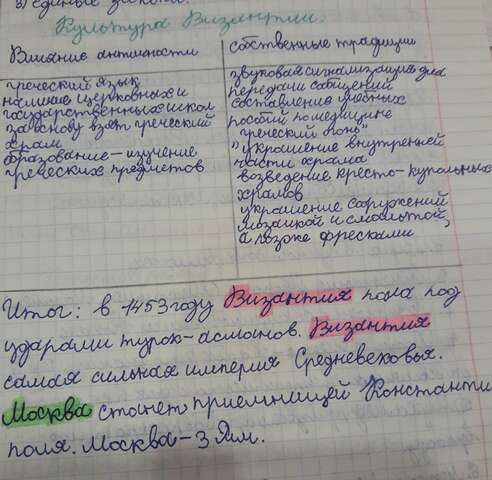 3) единые законы.
Культура Византии.
Влияние античности
греческий язык
наличие церковных и
государственных школ
за основу взят греческий
храм
образование – изучение
греческих предметов
собственные традиции
звуковая сигнализация для
передачи сообщений
составление учебных
пособий по медицине
"греческий огонь"
украшение внутренней
части храма
возведение кресто-купольных
храмов
украшение сооружений
мозаикой и смальтой,
а позже фресками
Итог: в 1453 году Византия пала под
ударами турок-османов. Византия
самая сильная империя Средневековья.
Москва станет приемницей Константи
поля. Москва – 3 Рим.